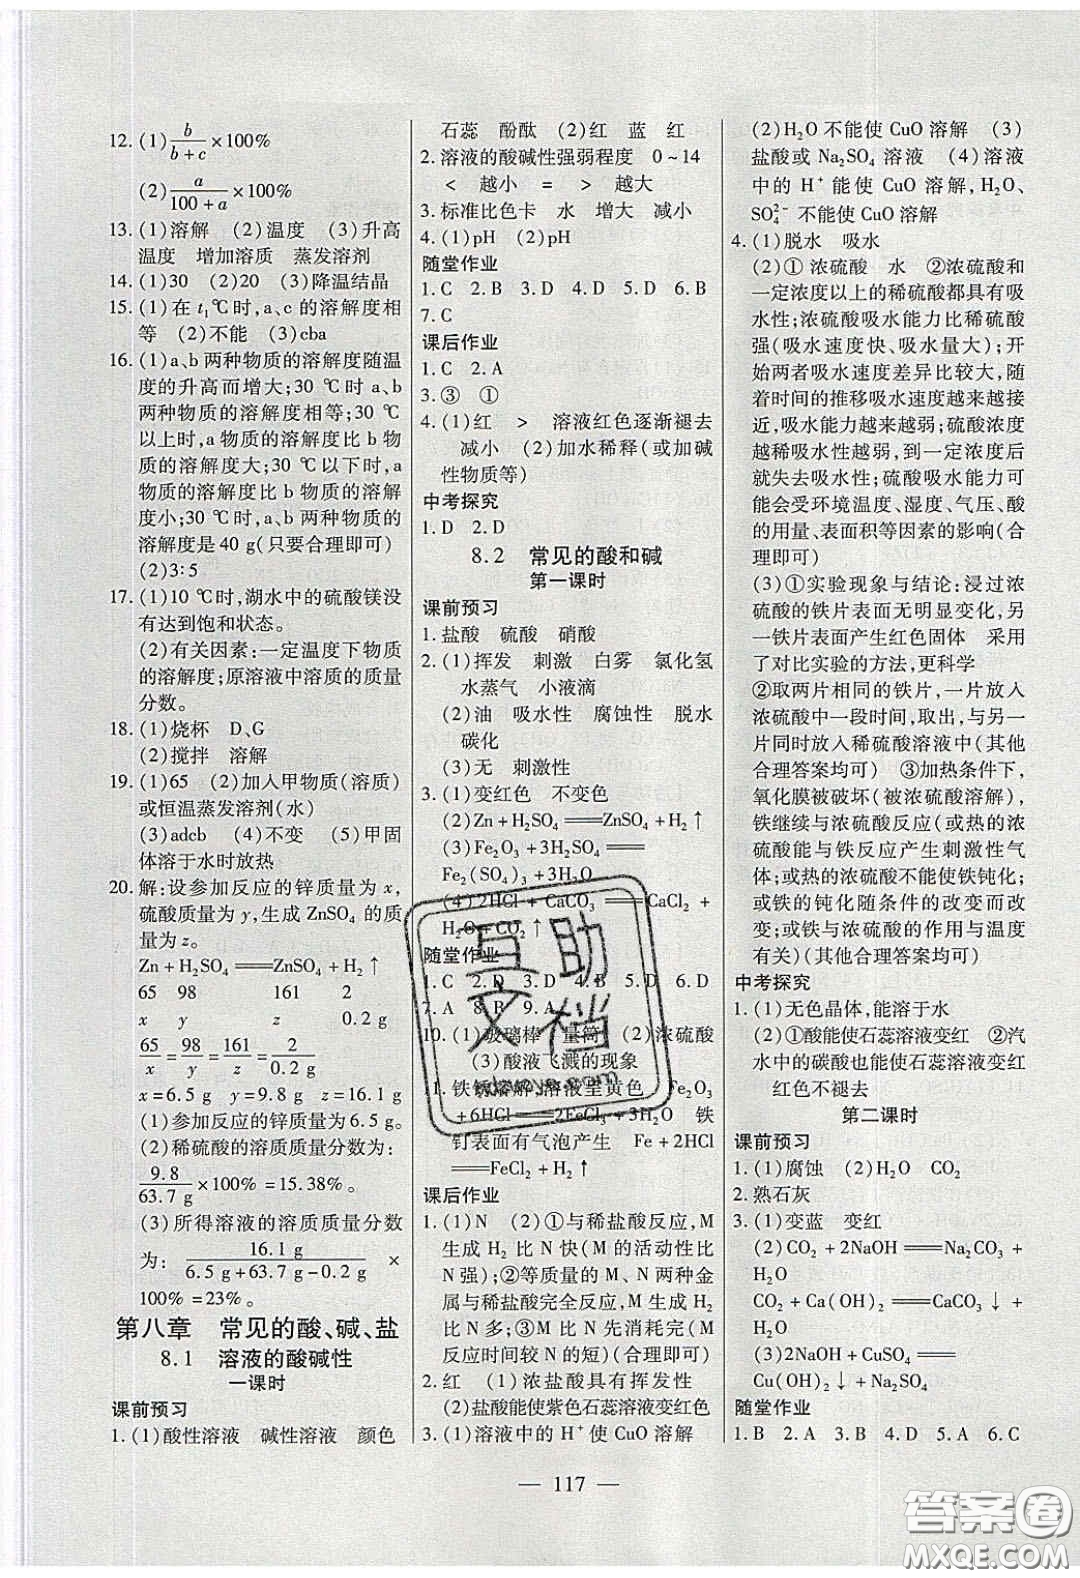 12. (1) b/(b+c) ×100%
(2) a/(100+a) ×100%
13. (1)溶解 (2)温度 (3)升高
温度 增加溶质 蒸发溶剂
14. (1)30 (2)20 (3)降温结晶
15. (1)在 t₁℃时,a、c 的溶解度相
等 (2)不能 (3)cba
16. (1)a、b 两种物质的溶解度随温
度的升高而增大;30 ℃时 a、b
两种物质的溶解度相等;30 ℃
以上时,a 物质的溶解度比 b 物
质的溶解度大;30 ℃以下时,a
物质的溶解度比 b 物质的溶解
度小;30 ℃时,a、b 两种物质的
溶解度是 40 g(只要合理即可)
(2)3:5
17. (1)10 ℃时,湖水中的硫酸镁没
有达到饱和状态。
(2)有关因素:一定温度下物质
的溶解度;原溶液中溶质的质量
分数。
18. (1)烧杯 D、G
(2)搅拌 溶解
19. (1)65 (2)加入甲物质(溶质)
或恒温蒸发溶剂(水)
(3)adcb (4)不变 (5)甲固
体溶于水时放热
20. 解:设参加反应的锌质量为 x,
硫酸质量为 y,生成 ZnSO₄ 的质
量为 z。
Zn+H₂SO₄══ZnSO₄+H₂↑
65 98 161 2
x y z 0.2 g
65/x=98/y=161/z=2/0.2 g
x=6.5 g y=9.8 g z=16.1 g
(1)参加反应的锌质量为6.5 g;
(2)稀硫酸的溶质质量分数为:
9.8/63.7 g×100%=15.38%。
(3)所得溶液的溶质质量分数
为: 16.1 g/(6.5 g+63.7 g-0.2 g) ×
100%=23%。
第八章 常见的酸、碱、盐
8.1 溶液的酸碱性
一课时
课前预习
1. (1)酸性溶液 碱性溶液 颜色
石蕊 酚酞 (2)红 蓝 红
2. 溶液的酸碱性强弱程度 0~14
< 越小 = > 越大
3. 标准比色卡 水 增大 减小
4. (1)pH (2)pH
随堂作业
1. C 2. B 3. D 4. D 5. D 6. B
7. C
课后作业
1. C 2. A
3. ③ ①
4. (1)红 > 溶液红色逐渐褪去
减小 (2)加水稀释(或加碱
性物质等)
中考探究
1. D 2. D
8.2 常见的酸和碱
第一课时
课前预习
1. 盐酸 硫酸 硝酸
2. (1)挥发 刺激 白雾 氯化氢
水蒸气 小液滴
(2)油 吸水性 腐蚀性 脱水
碳化
(3)无 刺激性
3. (1)变红色 不变色
(2)Zn+H₂SO₄══ZnSO₄+H₂↑
(3)Fe₂O₃+3H₂SO₄══
Fe₂(SO₄)₃+3H₂O
(4)2HCl+CaCO₃══CaCl₂+
H₂O+CO₂↑
随堂作业
1. C 2. D 3. D 4. B 5. D 6. D
7. A 8. B 9. A
10. (1)玻璃棒 量筒 (2)浓硫酸
(3)酸液飞溅的现象
1. 铁锈溶解,溶液呈黄色 Fe₂O₃
+6HCl══2FeCl₃+3H₂O 铁
钉表面有气泡产生 Fe+2HCl
══FeCl₂+H₂↑
课后作业
1. (1)N (2)①与稀盐酸反应,M
生成 H₂ 比 N 快(M 的活动性比
N 强);②等质量的 M、N 两种金
属与稀盐酸完全反应,M 生成 H₂
比 N 多;③M 比 N 先消耗完(M
反应时间较 N 的短)(合理即可)
2. 红 (1)浓盐酸具有挥发性
(2)盐酸能使紫色石蕊溶液变红色
3. (1)溶液中的 H⁺ 使 CuO 溶解
(2)H₂O 不能使 CuO 溶解 (3)
盐酸或 Na₂SO₄ 溶液 (4)溶液
中的 H⁺ 能使 CuO 溶解,H₂O、
SO₄²⁻ 不能使 CuO 溶解
4. (1)脱水 吸水
(2)① 浓硫酸 水 ②浓硫酸和
一定浓度以上的稀硫酸都具有吸
水性;浓硫酸吸水能力比稀硫酸
强(吸水速度快、吸水量大);开
始两者吸水速度差异比较大,随
着时间的推移吸水速度越来越接
近,吸水能力越来越弱;硫酸浓度
越稀吸水性越弱,到一定浓度后
就失去吸水性;硫酸吸水能力可
能会受环境温度、湿度、气压、酸
的用量、表面积等因素的影响(合
理即可)
(3)①实验现象与结论:浸过浓
硫酸的铁片表面无明显变化,另
一铁片表面产生红色固体 采用
了对比实验的方法,更科学
②取两片相同的铁片,一片放入
浓硫酸中一段时间,取出,与另一
片同时放入稀硫酸溶液中(其他
合理答案均可) ③加热条件下,
氧化膜被破坏(被浓硫酸溶解),
铁继续与浓硫酸反应(或热的浓
硫酸与铁反应产生刺激性气
体;或热的浓硫酸不能使铁钝化;
或铁的钝化随条件的改变而改
变;或铁与浓硫酸的作用与温度
有关)(其他合理答案均可)
中考探究
1. (1)无色晶体,能溶于水
(2)①酸能使石蕊溶液变红 ②汽
水中的碳酸也能使石蕊溶液变红
红色不褪去
第二课时
课前预习
1. (1)腐蚀 (2)H₂O CO₂
2. 熟石灰
3. (1)变蓝 变红
(2)CO₂+2NaOH══Na₂CO₃+
H₂O
CO₂+Ca(OH)₂══CaCO₃↓+
H₂O
(3)2NaOH+CuSO₄══
Cu(OH)₂↓+Na₂SO₄
随堂作业
1. B 2. A 3. B 4. D 5. A 6. C
— 117 —
互助
文档
答案圈
MXQE.COM